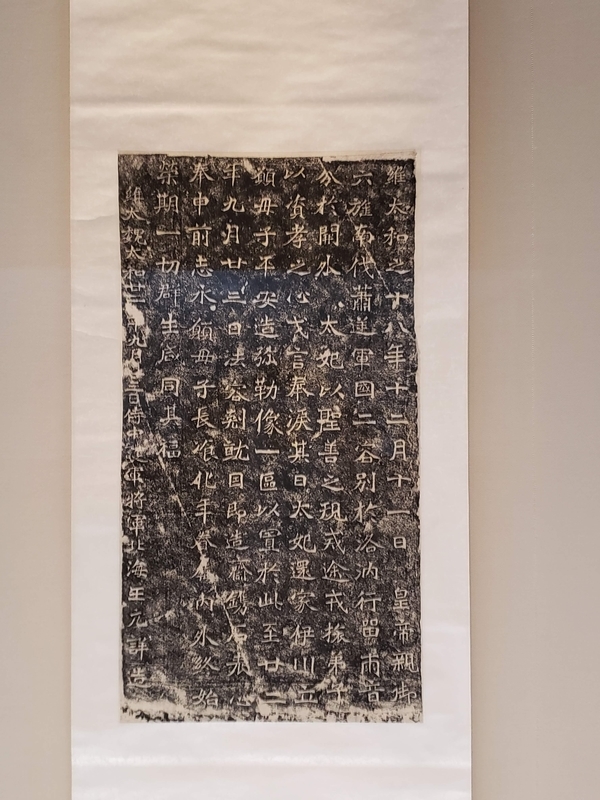 維太和之十八年十二月十一日 皇帝親御
六旌南伐蕭逆軍國二容別於洛汭行留兩音
分於闕外 太妃以聖善之規戒途戎旅弟子
以資孝之心戈言奉淚其日太妃還家伊川立
願母子平安造弥勒像一區以置於此至廿二
年九月廿三日法容剋就因即造齋鐫石表心
奉申前志永願母子長瘉化年眷屬內外終始
榮期一切群生咸同其福
維大魏太和廿二年九月廿三日侍中護軍將軍北海王元詳造